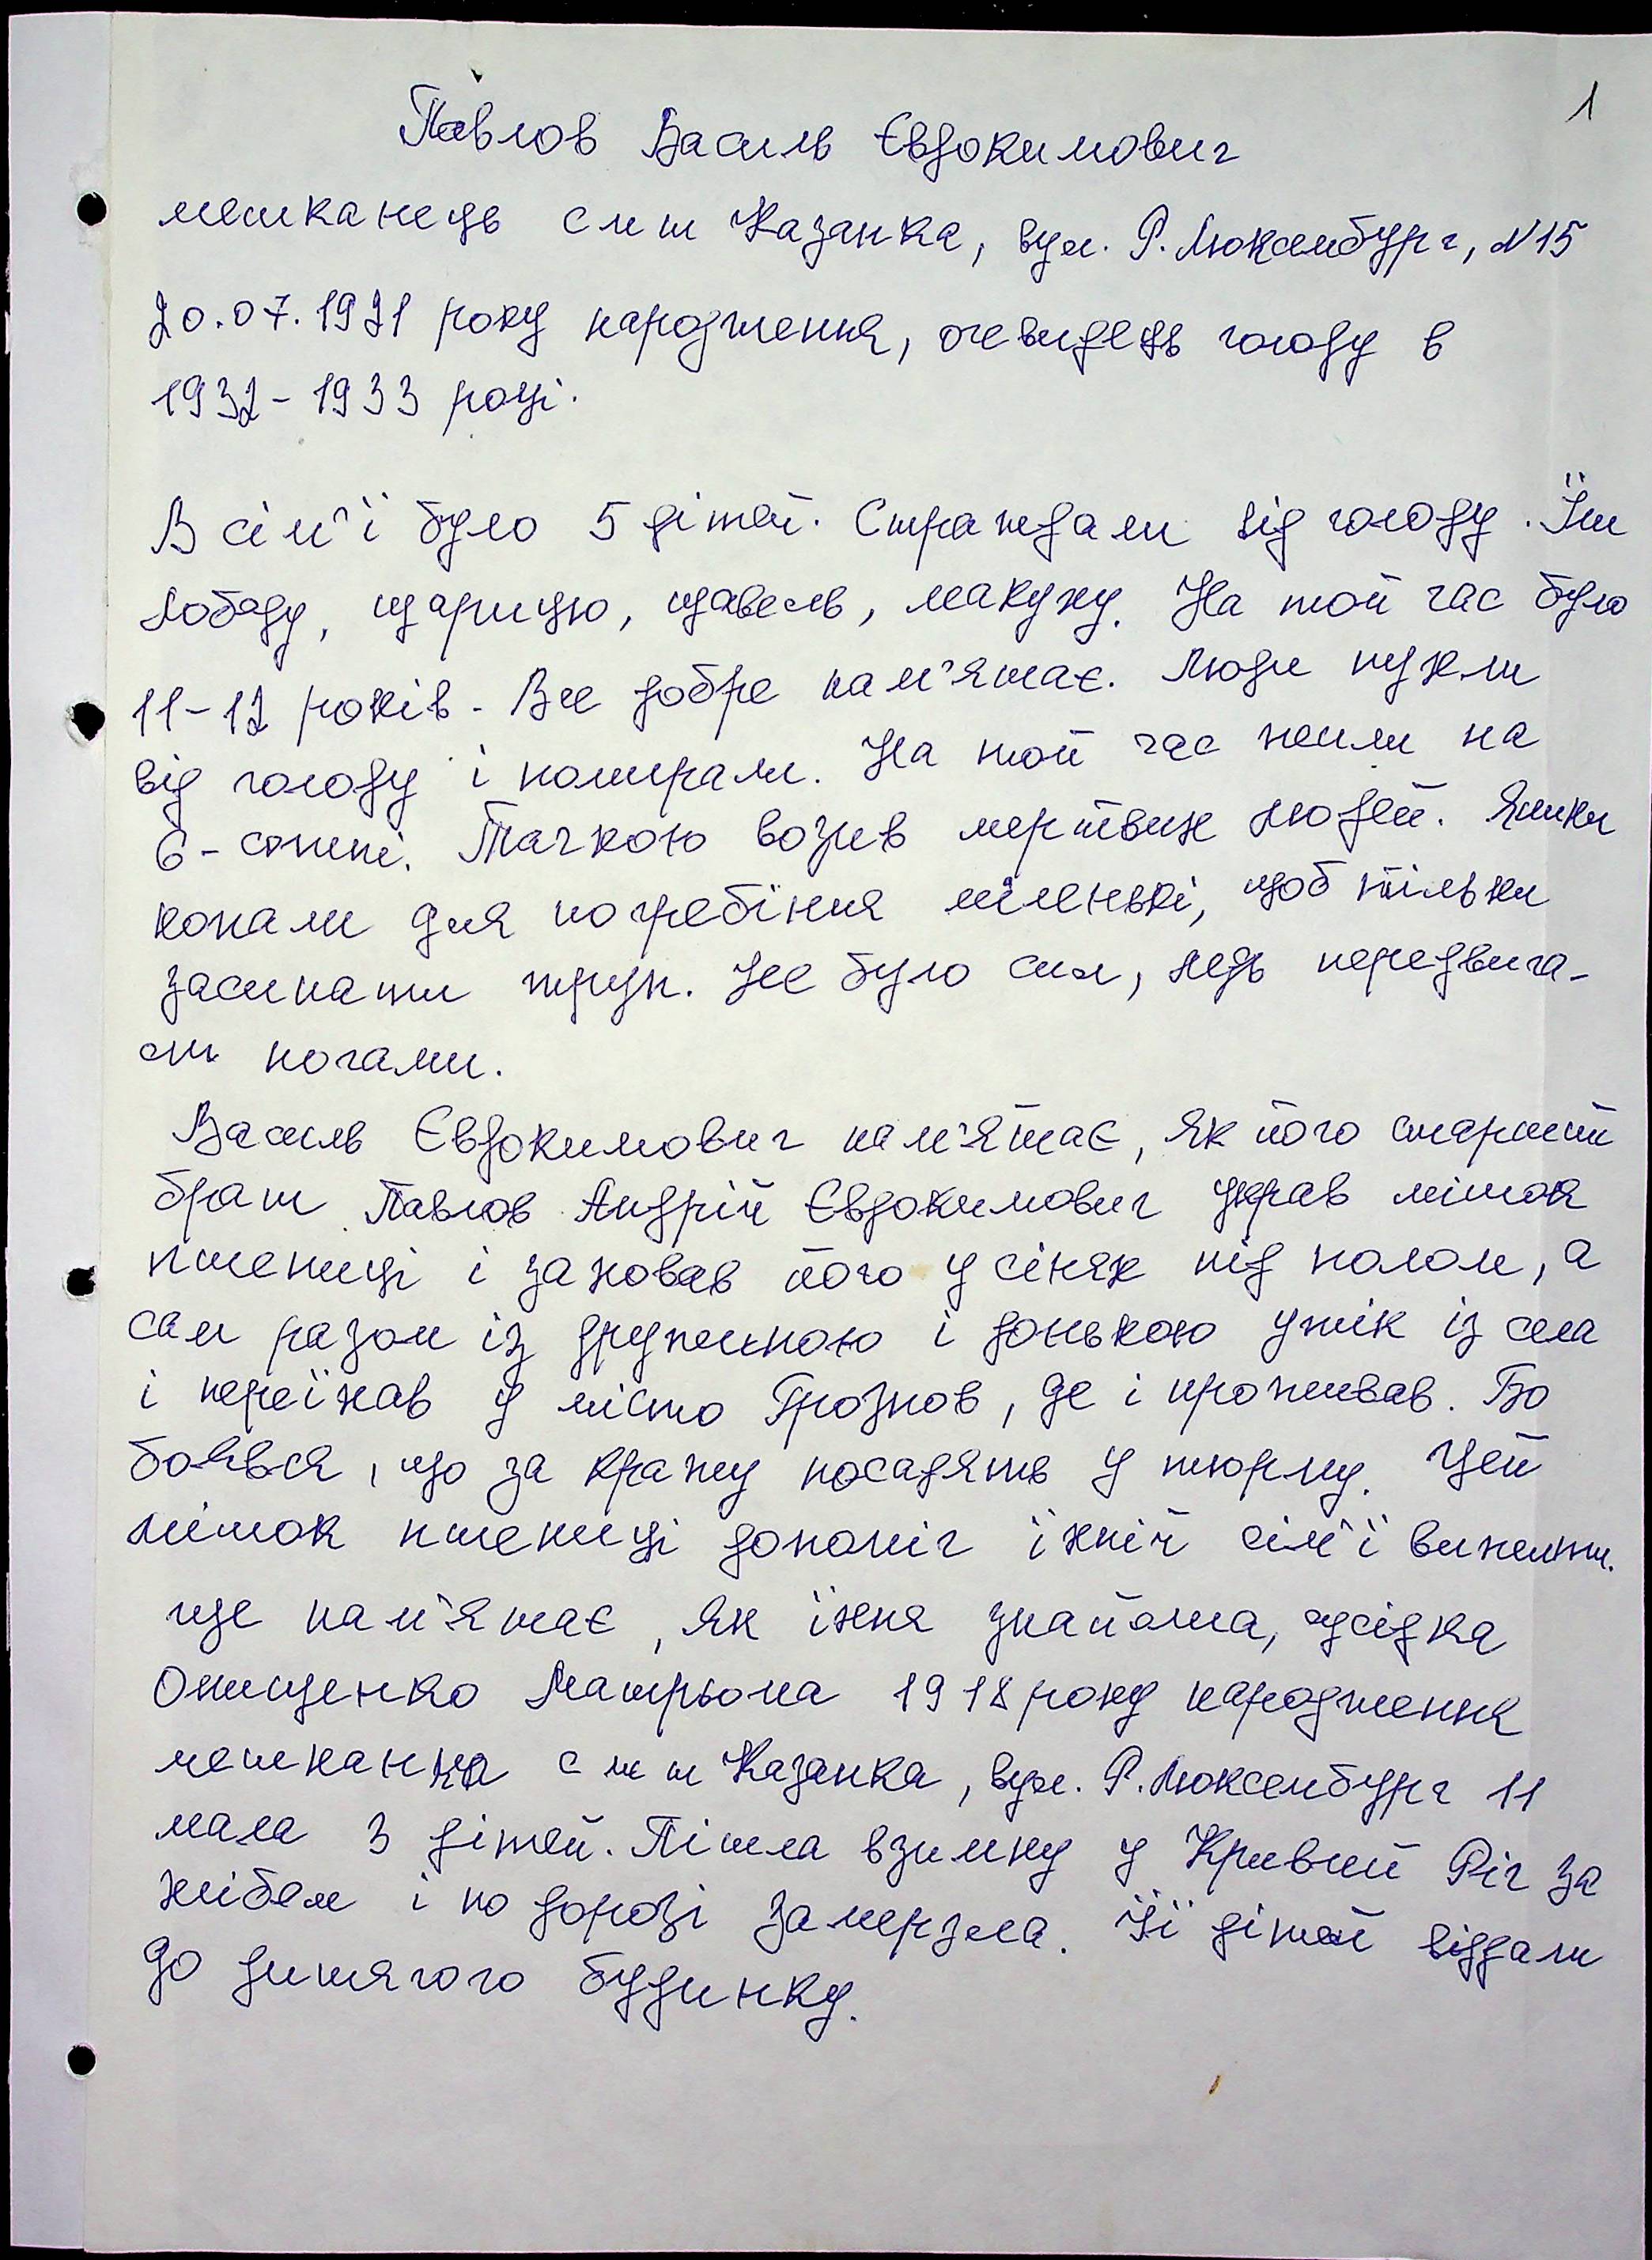 1
Павлов Василь Євдокимович
мешканець смт Казанка, вул. Р. Люксембург, №15
20.07.1921 року народження, очевидець голоду в
1932-1933 році.
В сім'ї було 5 дітей. Страждали від голоду. Їли
лободу, щирицю, щавель, макуху. На той час було
11-12 років. Все добре пам'ятає. Люди пухли
від голоду і помирали. На той час жили на
6-сотні. Тачкою возив мертвих людей. Ямки
копали для погребіння міленькі, щоб тільки
засипати труп. Не було сил, ледь передвига-
ли ногами.
Василь Євдокимович пам'ятає, як його старший
брат Павлов Андрій Євдокимович украв мішок
пшениці і заховав його у сінях під полом, а
сам разом із дружиною і донькою утік із села
і переїхав у місто Грознов, де і проживав. Бо
боявся, що за кражу посадять у тюрму. Цей
мішок пшениці допоміг їхній сім'ї вижити.
ще пам'ятає, як їхня знайома, сусідка
Онищенко Матрьона 1918 року народження
мешканка смт Казанка, вул. Р. Люксембург 11
мала 3 дітей. Пішла взимку у Кривий Ріг за
хлібом і по дорозі замерзла. Її дітей віддали
до дитячого будинку.